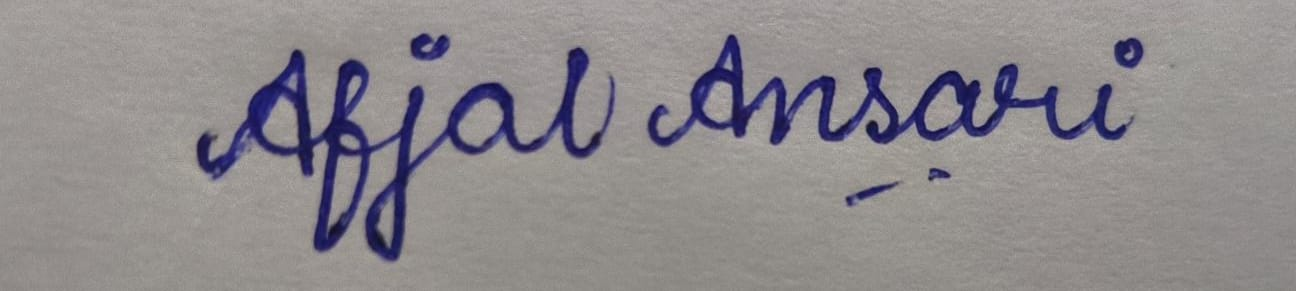 Afjal Ansari